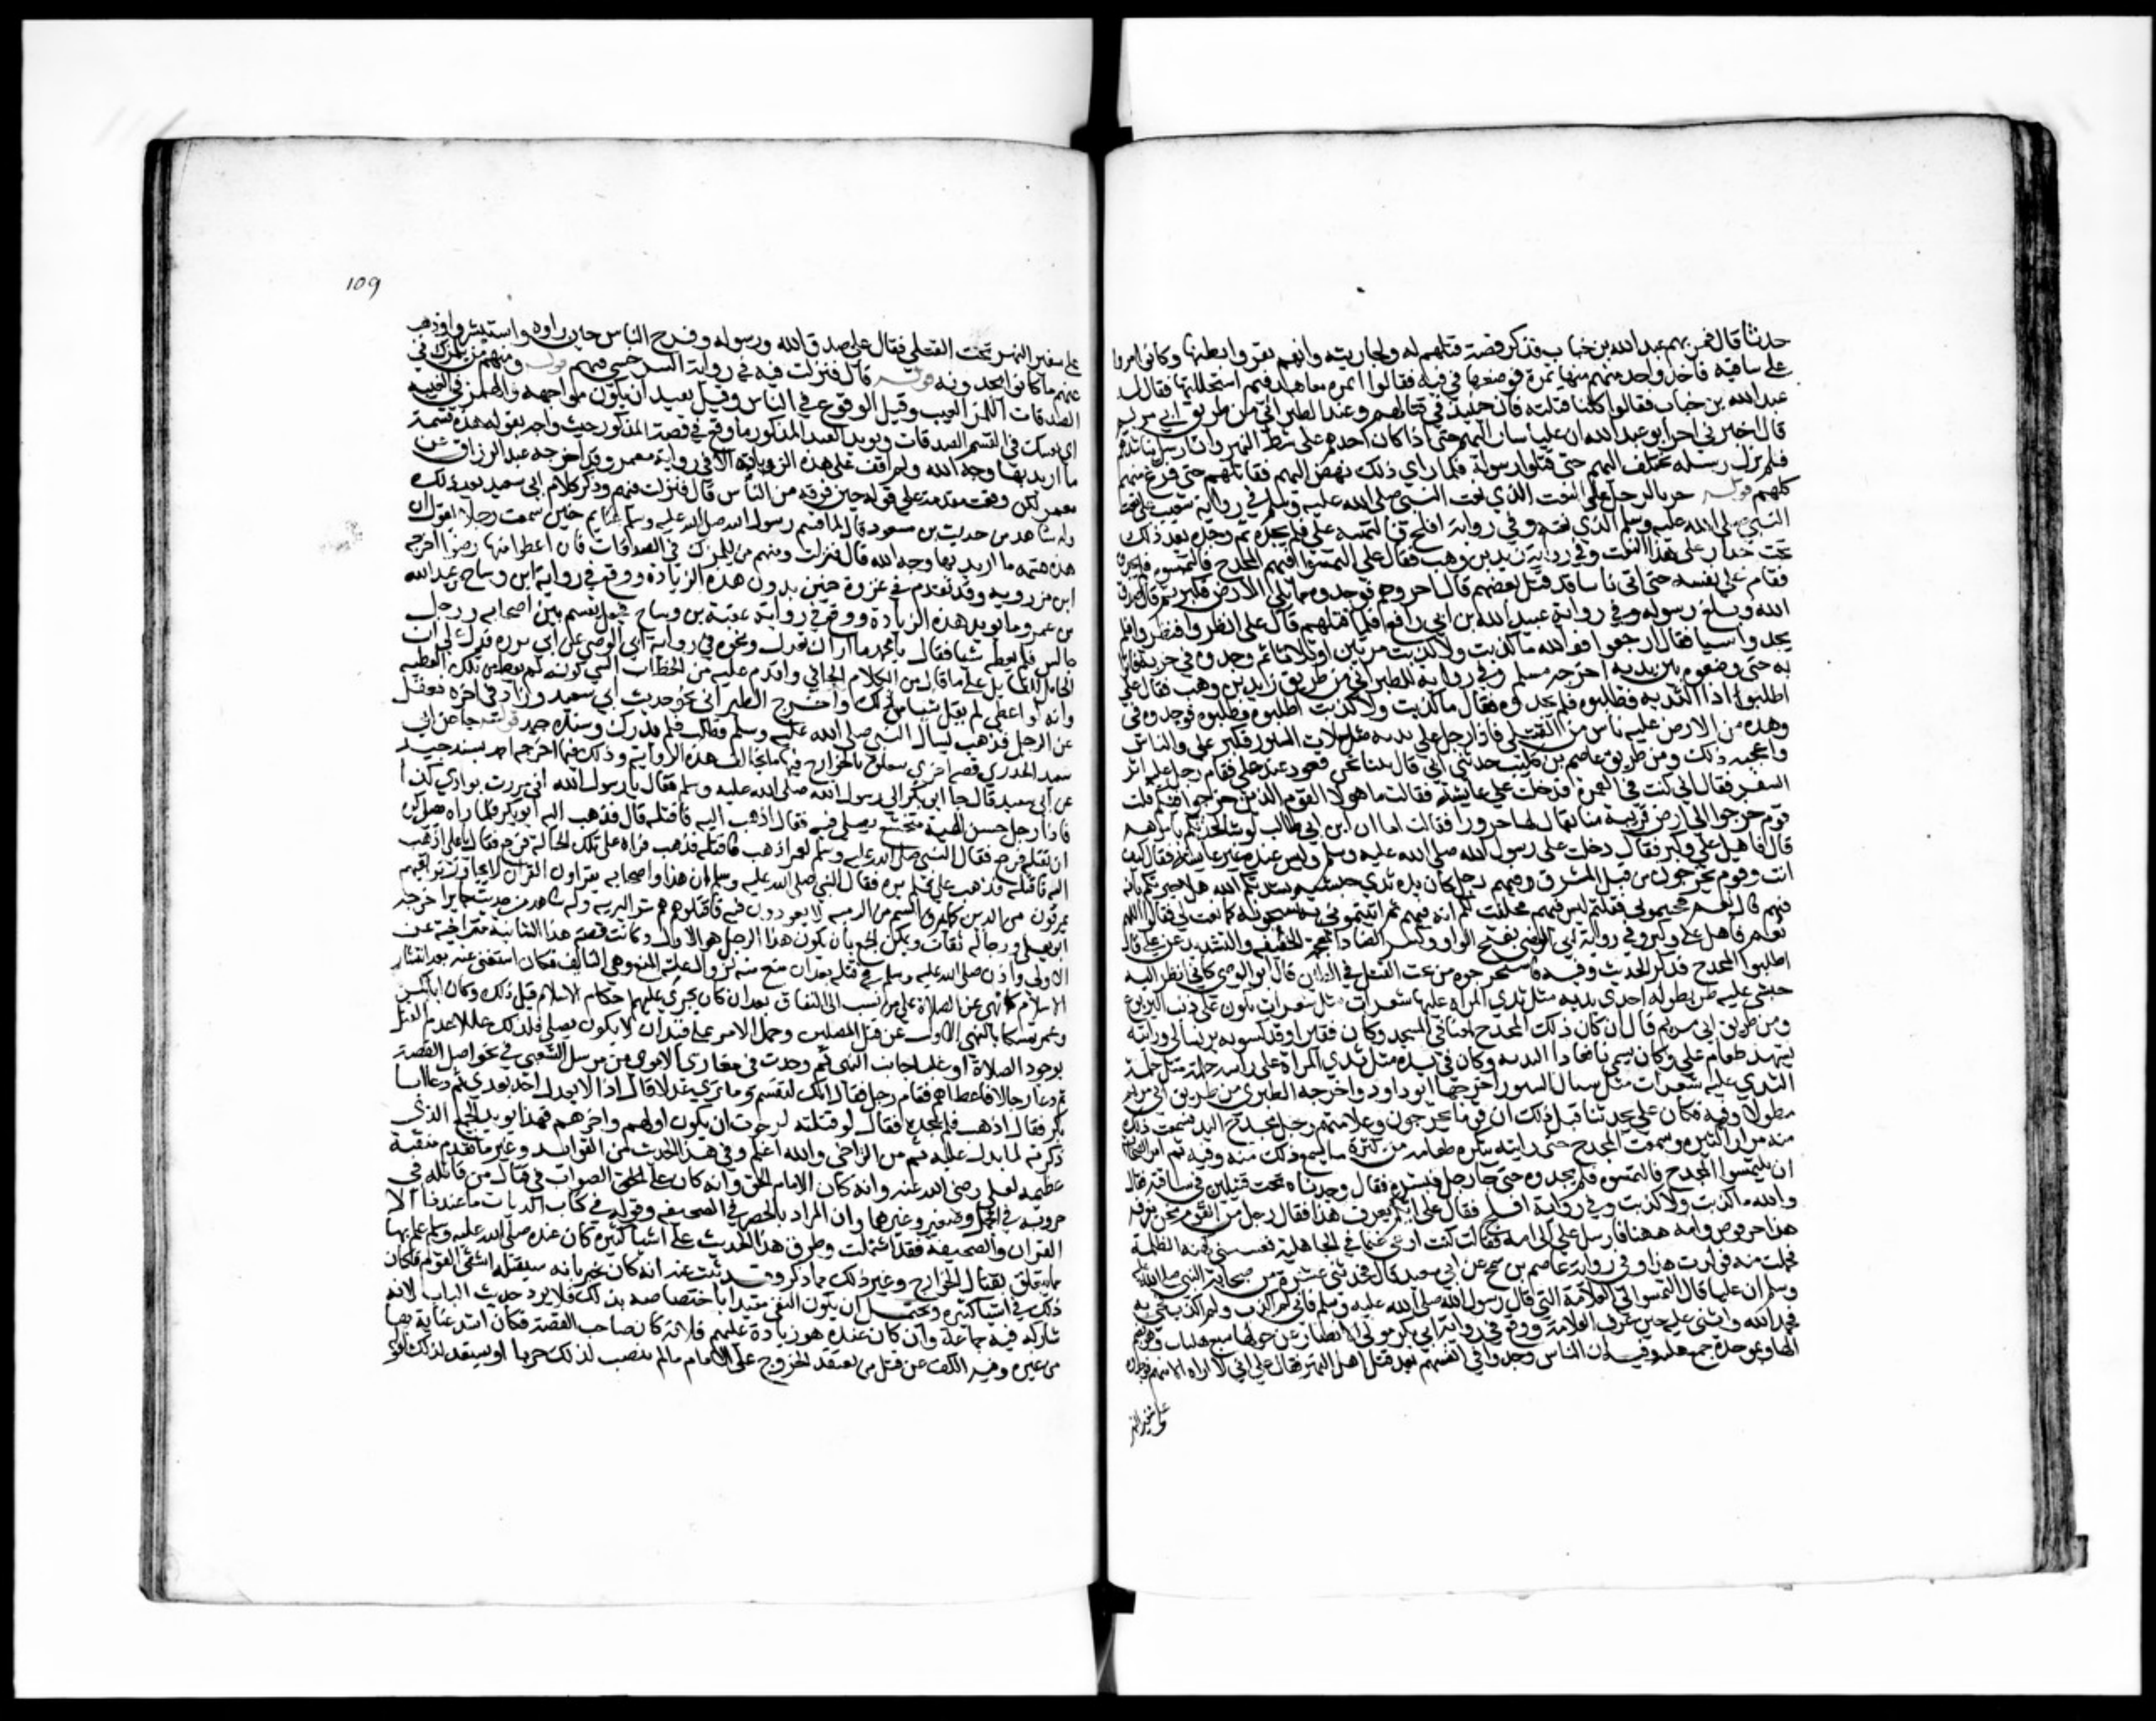 حدثنا قال فمر بهم عبد الله بن خباب فذكر قصة قتلهم له ولجاريته وانهم بقروا بطنها وكانوا مروا
على ساقية فاخذ واحد منهم منها تمرة فوضعها في فيه فقالوا له تمرة معاهد فبم استحللتها فقال لهم
عبد الله بن خباب فقالوا كلنا قتلته فاذن حينئذ في قتالهم وعند الطبراني من طريق ابي مريم
قال اخبرني اخي ابو عبد الله ان عليا سار اليهم حتى اذا كان احدهم على شط النهروان ارسل يناشدهم
فلم تزل رسله تختلف اليهم حتى قتلوا رسوله فلما راى ذلك نهض اليهم فقاتلهم حتى فرغ منهم
كلهم قوله جيء بالرجل على النعت الذي نعت النبي صلى الله عليه وسلم في رواية شعيب على نعت
النبي صلى الله عليه وسلم الذي نعته وفي رواية افلح فالتمسه علي فلم يجده ثم وجده بعد ذلك
تحت جدار على هذا النعت وفي رواية زيد بن وهب فقال علي التمسوا فيهم المخدج فالتمسوه فلم يجدوه
فقام علي بنفسه حتى اتى ناسا قد قتل بعضهم قال اخروهم فوجدوه مما يلي الارض فكبر ثم قال صدق
الله وبلغ رسوله وفي رواية عبيد الله بن ابي رافع فلما قتلهم قال علي انظروا فنظروا فلم
يجدوا شيا فقال ارجعوا فوالله ما كذبت ولا كذبت مرتين او ثلاثا ثم وجدوه في خربة فاتوا
به حتى وضعوه بين يديه اخرجه مسلم وفي رواية للطبراني من طريق زيد بن وهب فقال علي
اطلبوا ذا الثدية فطلبوه فلم يجدوه فقال ما كذبت ولا كذبت اطلبوه فطلبوه فوجدوه في
وهدة من الارض عليه ناس من القتلى فاذا رجل على يده مثل سبلات السنور فكبر علي والناس
واعجبه ذلك ومن طريق عاصم بن كليب حدثني ابي قال بينا نحن قعود عند علي فقام رجل عليه اثر
السفر فقال اني كنت في العمرة فدخلت على عايشة فقالت ما هولا القوم الذين خرجوا فيكم قلت
قوم خرجوا الى ارض قريبة منا يقال لها حرورا فقالت اما ان ابن ابي طالب لو شا لحدثكم بامرهم
قال فاهل علي وكبر فقال دخلت على رسول الله صلى الله عليه وسلم وليس عنده غير عايشة فقال كيف
انت وقوم يخرجون من قبل المشرق وفيهم رجل كان يده ثدي حبشية نشدتكم الله هل اخبرتكم بانه
فيهم قالوا نعم فجيتموني فقلتم ليس فيهم فحلفت لكم انه فيهم ثم اتيتموني به تسحبونه كما نعت لي فقالوا اللهم
نعم فاهل علي وكبر وفي رواية ابي الوضي بفتح الواو وكسر الضاد المعجمة الخفيفة والتشديد عن علي قال
اطلبوا المخدج فذكر الحديث وفيه فاستخرجوه من تحت القتلى في طين قال ابو الوضي كاني انظر اليه
حبشي عليه طريطق له احدى يديه مثل ثدي المراة عليها شعيرات مثل شعيرات تكون على ذنب اليربوع
ومن طريق ابي مريم قال ان كان ذلك المخدج لمعنا في المسجد وكان فقيرا وقد كسوته برنسا لي ورايته
يشهد طعام علي وكان يسمى نافعا ذا الثدية وكان في يده مثل ثدي المراة على راسه حلمة مثل حلمة
الثدي عليه شعيرات مثل سبال السنور اخرجهما ابو داود واخرجه الطبري من طريق ابي مريم
مطولا وفيه فكان علي يحدثنا قبل ذلك ان قوما يخرجون وعلامتهم رجل مخدج اليد فسمعت ذلك
منه مرارا كثيرة وسمعت المخدج حتى رايته يتكره طعامه من كثرة ما يسمع ذلك منه وفيه ثم امر اصحابه
ان يلتمسوا المخدج فالتمسوه فلم يجدوه حتى جا رجل فبشره فقال وجدناه تحت قتيلين في ساقية فقال
والله ما كذبت ولا كذبت وفي رواية افلح فقال علي ايكم يعرف هذا فقال رجل من القوم نحن نعرفه
هذا حرقوص وامه ههنا فارسل علي الى امه فقالت كنت ارعى غنما في الجاهلية فغشيني كهيئة الظلمة
فحملت منه فولدت هذا وفي رواية عاصم بن شمخ عن ابي سعيد قال حدثني عشرة من صحابة النبي صلى الله عليه
وسلم ان عليا قال التمسوا لي العلامة التي قال رسول الله صلى الله عليه وسلم فاني لم اكذب ولم اكذب فجي به
فحمد الله واثنى عليه حين عرف العلامة ووقع في رواية ابي بكر مولى الانصار عن حولها سبع هلبات وهو بضم
الها وبموحدة جمع هلبة وفيه ان الناس وجدوا في انفسهم بعد قتل اهل النهر فقال علي اني لا اراه الا منهم فوجدوه
على شفير النهر
109
على شفير النهر تحت القتلى فقال علي صدق الله ورسوله وفرح الناس حين راوه واستبشروا وذهب
عنهم ما كانوا يجدونه قوله قال فنزلت فيه في رواية السرخسي فيهم قوله ومنهم من يلمزك في
الصدقات اللمز العيب وقيل الوقوع في الناس وقيل بقيد ان يكون مواجهة والهمز في الغيبة
اي يعيبك في القسم الصدقات ويويد القيد المذكور ما وقع في قصة المذكور حيث واجه بقوله هذه قسمة
ما اريد بها وجه الله ولم اقف على هذه الزيادة الا في رواية معمر وقد اخرجه عبد الرزاق عن
معمر لكن وقعت مقدمة على قوله حين فرقة من الناس قال فنزلت فيهم وذكر كلام ابي سعيد بعد ذلك
وله شاهد من حديث بن مسعود قال لما قسم رسول الله صلى الله عليه وسلم غنايم حنين سمعت رجلا يقول ان
هذه قسمة ما اريد بها وجه الله قال فنزلت ومنهم من يلمزك في الصدقات فان اعطوا منها رضوا اخرجه
ابن مردويه وقد تقدم في غزوة حنين بدون هذه الزيادة ووقع في رواية ابن وساج عن عبد الله
بن عمرو ما يويد هذه الزيادة ووقع في رواية عقبة بن وساج فجعل يقسم بين اصحابه ورجل
جالس فلم يعطه شيا فقال يا محمد ما اراك تعدل ونحوه في رواية ابي الوضي عن ابي برزة فدل على ان
الحامل للقايل على ما قال من الكلام الجافي واقدم عليه من الخطاب السي كونه لم يعط من تلك العطية
وانه لو اعطي لم يقل شيا من ذلك واخرج الطبراني نحو حديث ابي سعيد وزاد في اخره فغفل
عن الرجل فذهب فسال النبي صلى الله عليه وسلم فطلب فلم يدرك وسنده جيد قوله جا عن ابي
سعيد الخدري قصة اخرى تتعلق بالخوارج فيها ما يخالف هذه الرواية وذلك فيما اخرجه احمد بسند جيد
عن ابي سعيد قال جا ابو بكر الى رسول الله صلى الله عليه وسلم فقال يا رسول الله اني مررت بوادي كذا
فاذا رجل حسن الهيئة متخشع يصلي فيه فقال اذهب اليه فاقتله قال فذهب اليه ابو بكر فلما راه يصلي كره
ان يقتله فرجع فقال النبي صلى الله عليه وسلم لعمر اذهب فاقتله فذهب فراه على تلك الحالة فرجع فقال يا علي اذهب
اليه فاقتله فذهب علي فلم يره فقال النبي صلى الله عليه وسلم ان هذا واصحابه يقراون القران لا يجاوز تراقيهم
يمرقون من الدين كما يمرق السهم من الرمية لا يعودون فيه فاقتلوهم هم شر البرية وله شاهد من حديث جابر اخرجه
ابو يعلى ورجاله ثقات ويمكن الجمع بان يكون هذا الرجل هو الاول وكانت قصته هذه الثانية متراخية عن
الاولى واذن صلى الله عليه وسلم في قتله بعد ان منع منه لزوال علة المنع وهي التالف فكانه استغنى عنه بعد انتشار
الاسلام كما نهى عن الصلاة على من نسب الى النفاق بعد ان كان يجري عليهم احكام الاسلام قبل ذلك وكان ابا بكر
وعمر تمسكا بالنهي الاول عن قتل المصلين وحملا الامر على قيد ان لا يكون يصلي فلذلك عللا عدم القتل
بوجود الصلاة او غلبا جانب النهي ثم وجدت في مغازي الاموي من مرسل الشعبي في نحو اصل القصة
ثم دعا رجالا فاعطاهم فقام رجل فقال انك لتقسم وما نرى عدلا قال اذا لا يعدل احد بعدي ثم دعا ابا
بكر فقال اذهب فلم يجده فقال لو قتلته لرجوت ان يكون اولهم واخرهم فهذا يويد الجمع الذي
ذكرته لما يدل عليه ثم من التراخي والله اعلم وفي هذا الحديث من الفوايد وغير ما تقدم منقبة
عظيمة لعلي رضي الله عنه وانه كان الامام الحق وانه كان على الحق الصواب في قتال من قاتله في
حروبه في الجمل وصفين وغيرها وان المراد بالحصر في الصحيفة وقوله في كتاب الديات ما عندنا الا
القران والصحيفة فقد اشتملت وطرق هذا الحديث على اشيا كثيرة كان عنده صلى الله عليه وسلم علم بها
مما يتعلق بقتال الخوارج وغير ذلك مما ذكر وقد ثبت عنه انه كان يخبر بانه سيقتله اشقى القوم فكان
ذلك في اشيا كثيرة ويحتمل ان يكون النفي مقيدا باختصاصه بذلك فلا يرد حديث الباب لانه
شاركه فيه جماعة وان كان عنده هو زيادة عليهم فلانه كان صاحب القصة فكان اشد عناية بها
من غيره وفيه الكف عن قتل من يعتقد الخروج على الامام ما لم ينصب لذلك حربا او يستعد لذلك لقوله